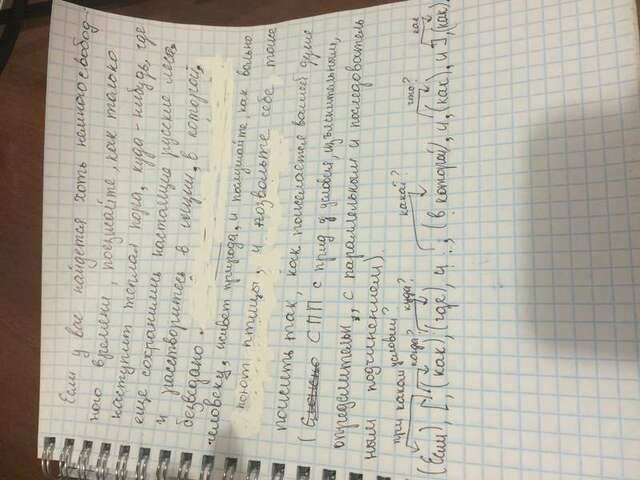 Если у вас найдется хоть немного свобод-
ного времени, поезжайте, как только
наступит теплая пора, куда-нибудь, где
еще сохранились настоящие русские леса,
и расстворитесь в тиши, в которой,
безведано
человеку, живет природа, и послушайте, как вольно
поют птицы, и позвольте себе тоже
пожить так, как пожелается вашей душе
(СПП с прид. условия, изъяснительным,
определительн., с параллельным и последователь
ным подчинением).
при каком условии? когда? куда? какой? что? как
(Если), [ ], (как), (где), и ..., (в которой), и, (как), и ], (как).